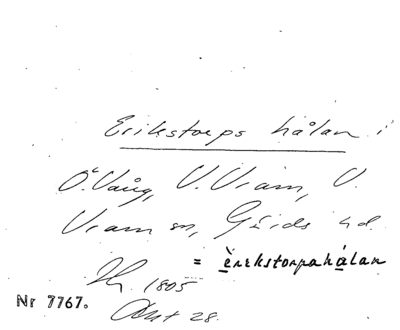 Erikstorps hålan i
Ö. Vång, V. Vram, V.
Vram sn, Gärds hd.
= èrekstorpahálan
1805
Nr 7767. Akt 28.